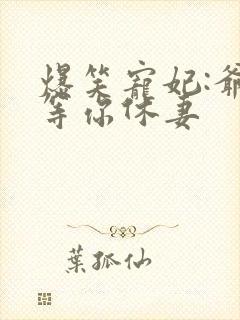 爆笑寵妃:爺
等你休妻
葉孤仙